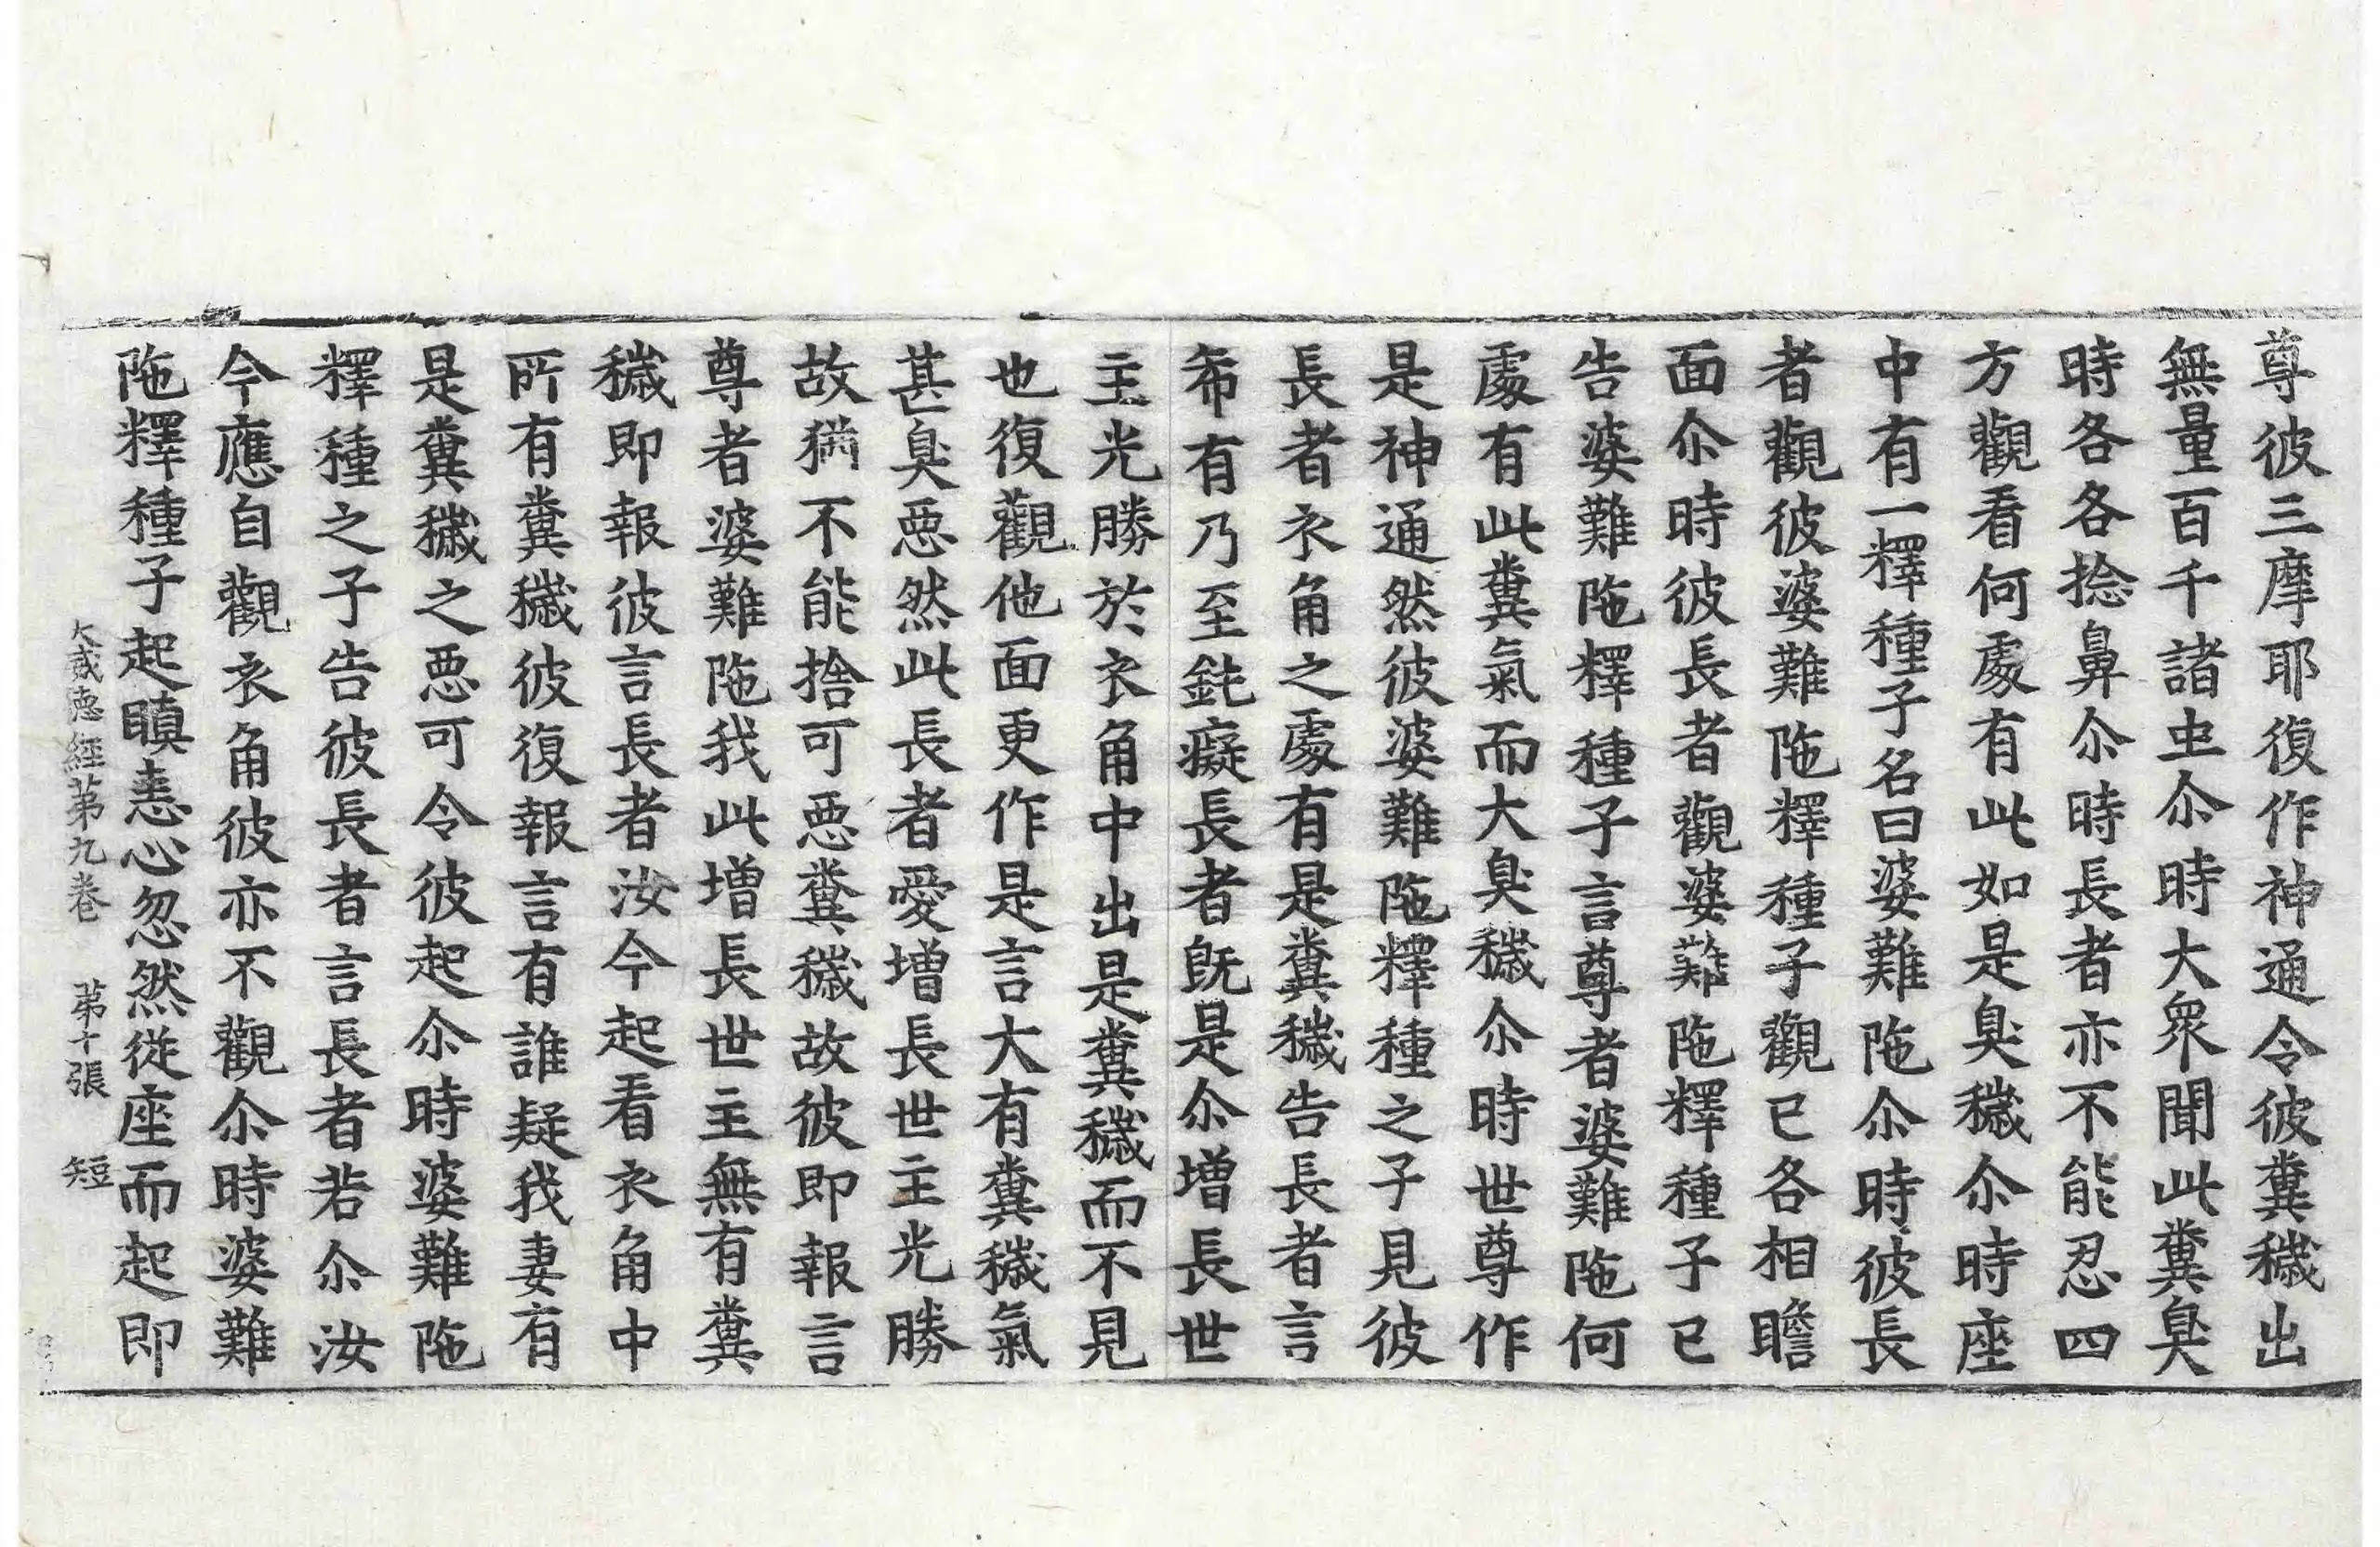 尊彼三摩耶復作神通令彼糞穢出
無量百千諸虫尒時大衆聞此糞臭
時各各捻鼻尒時長者亦不能忍四
方觀看何處有此如是臭穢尒時座
中有一釋種子名曰婆難陁尒時彼長
者觀彼婆難陁釋種子觀已各相瞻
面尒時彼長者觀婆難陁釋種子已
告婆難陁釋種子言尊者婆難陁何
處有此糞氣而大臭穢尒時世尊作
是神通然彼婆難陁釋種之子見彼
長者衣角之處有是糞穢告長者言
希有乃至鈍癡長者旣是尒增長世
主光勝於衣角中出是糞穢而不見
也復觀他面更作是言大有糞穢氣
甚臭惡然此長者愛增長世主光勝
故猶不能捨可惡糞穢故彼即報言
尊者婆難陁我此增長世主無有糞
穢即報彼言長者汝今起看衣角中
所有糞穢彼復報言有誰疑我妻有
是糞穢之惡可令彼起尒時婆難陁
釋種之子告彼長者言長者若尒汝
今應自觀衣角彼亦不觀尒時婆難
陁釋種子起瞋恚心忽然從座而起即
大威德經苐九卷 苐十張 短